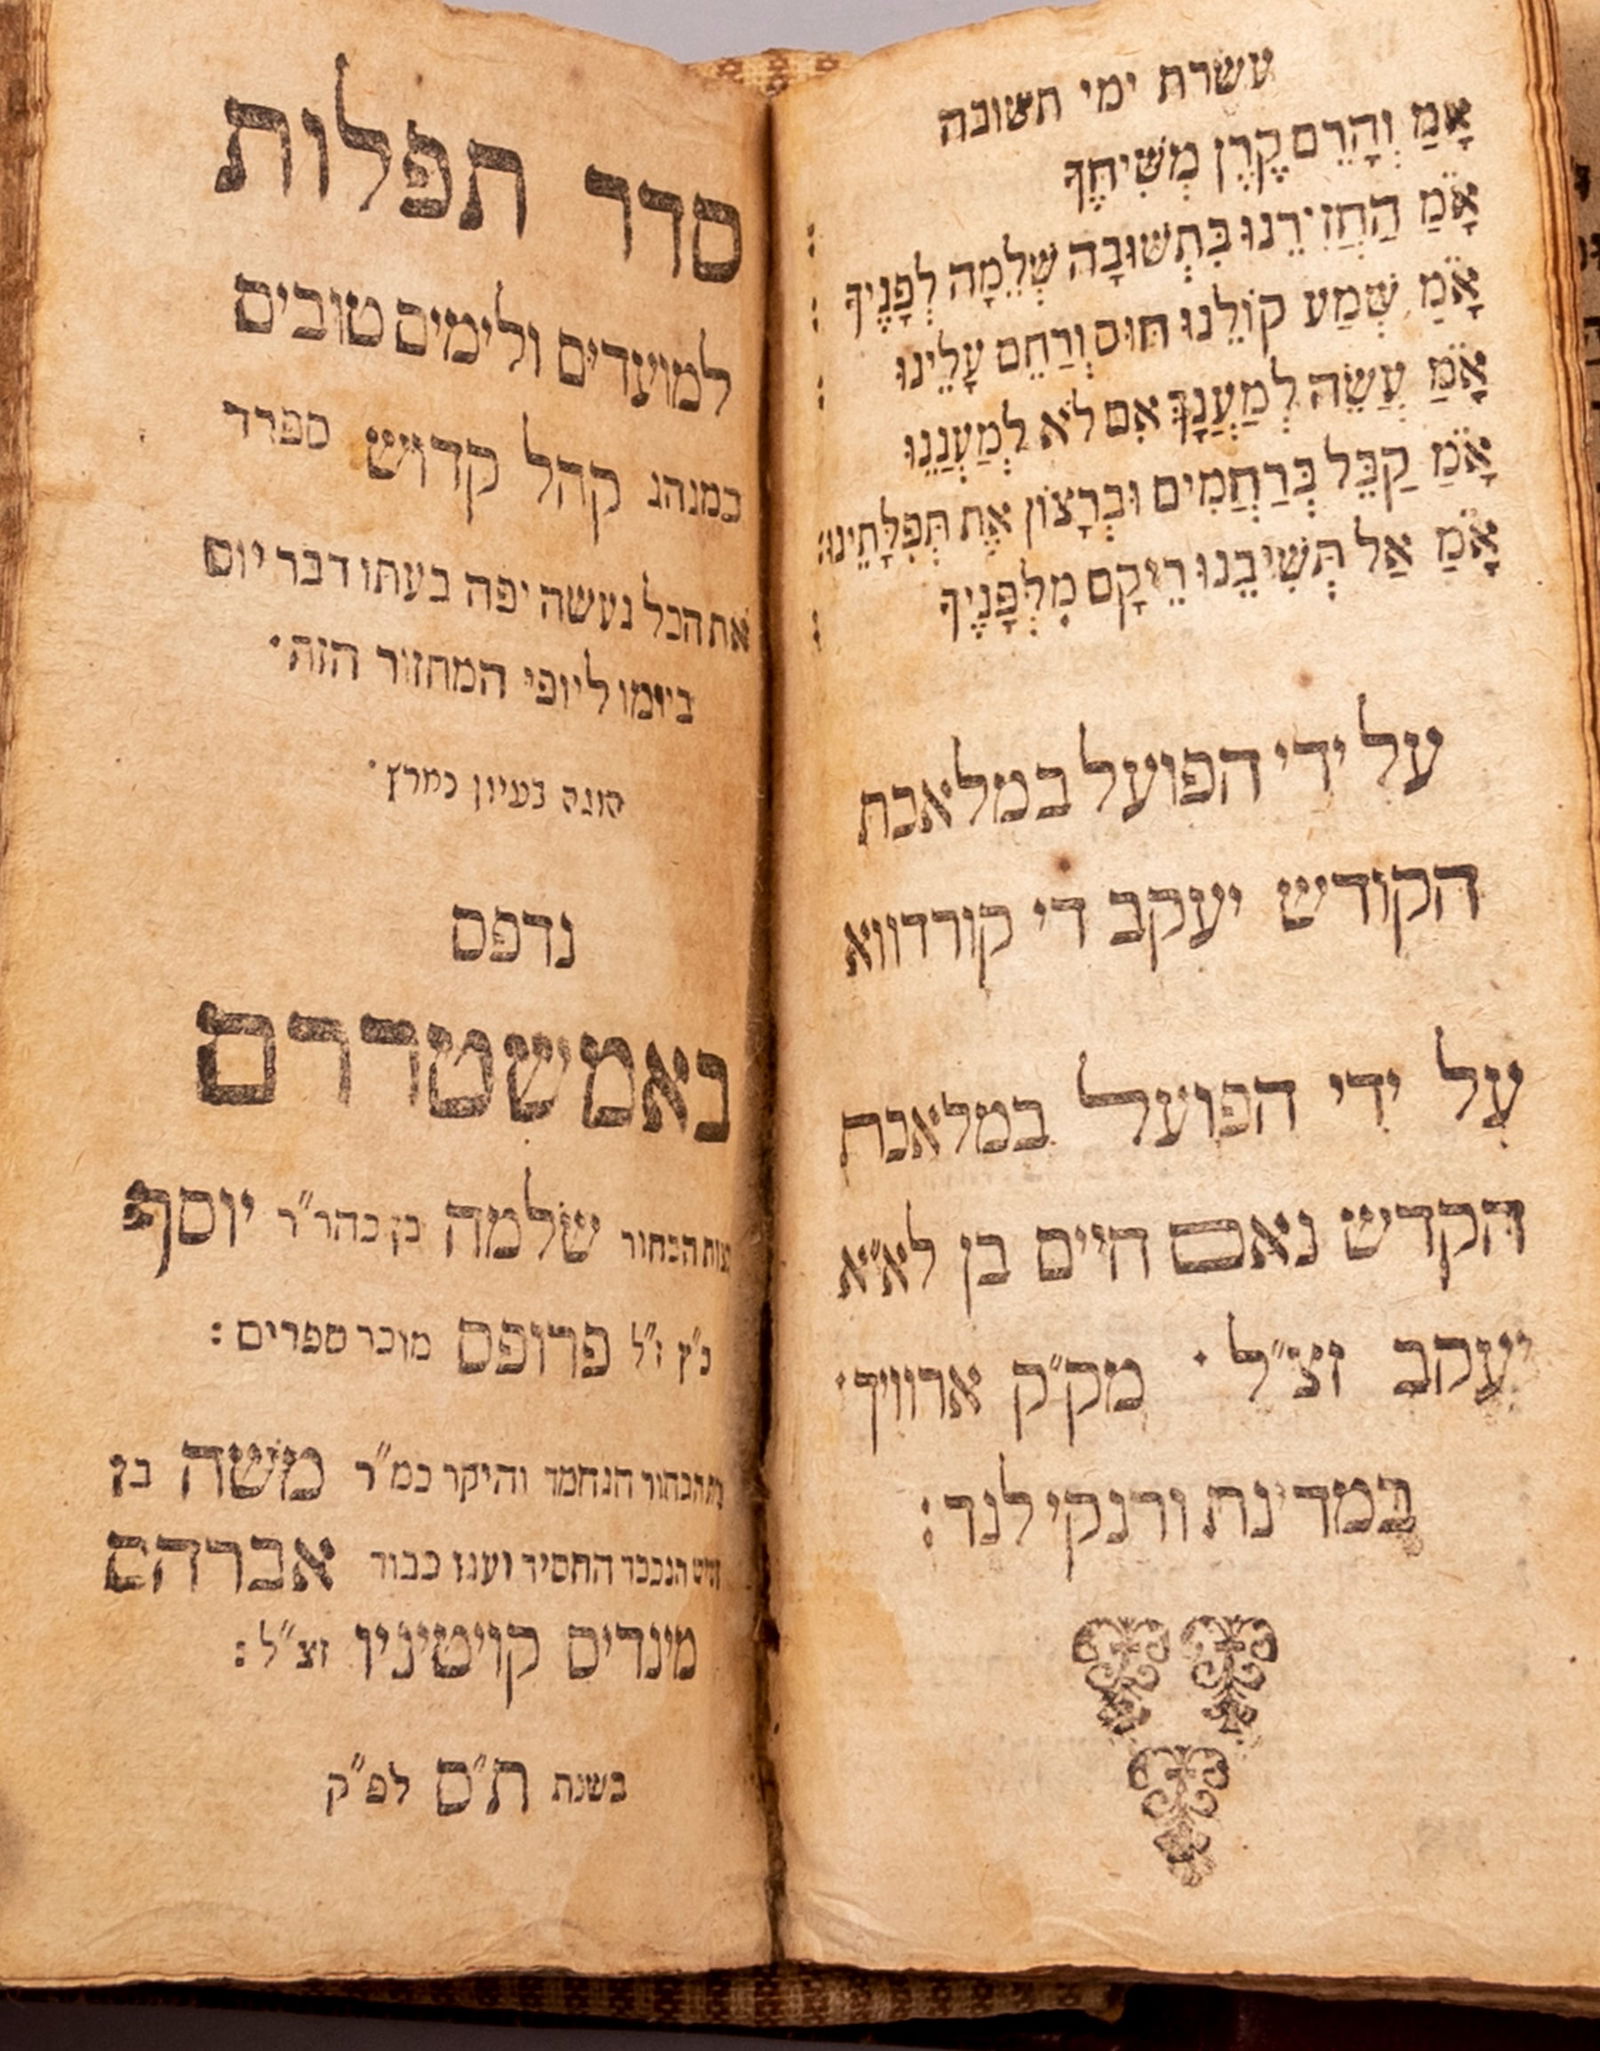 עשרת ימי תשובה
אָמַ וְהָרֵם קֶרֶן מְשִׁיחֶךָ
אָמַ הַחֲזִירֵנוּ בִּתְשׁוּבָה שְׁלֵמָה לְפָנֶיךָ
אָמַ שְׁמַע קוֹלֵנוּ חוּס וְרַחֵם עָלֵינוּ
אָמַ עֲשֵׂה לְמַעֲנָךְ אִם לֹא לְמַעֲנֵנוּ
אָמַ קַבֵּל בְּרַחֲמִים וּבְרָצוֹן אֶת תְּפִלָּתֵינוּ:
אָמַ אַל תְּשִׁיבֵנוּ רֵיקָם מִלְּפָנֶיךָ
על ידי הפועל במלאכת
הקודש יעקב די קורדווא
על ידי הפועל במלאכת
הקדש נאם חיים בן לא״א
יעקב זצ״ל · מק״ק ארוויך·
במדינת ורנקי לנד:
סדר תפלות
למועדים ולימים טובים
כמנהג קהל קדוש ספרד
את הכל נעשה יפה בעתו דבר יום
ביומו ליופי המחזור הזה·
הוגה בעיון נמרץ·
נדפס
באמשטרדם
הבחור שלמה בן כהר״ר יוסף
כ״ץ ז״ל פרופס מוכר ספרים:
הנחמד והיקר כמ״ר משה בן
הנכבד החסיד וענו כבוד אברהם
מינדים קויטיניו זצ״ל:
בשנת ת״ס לפ״ק